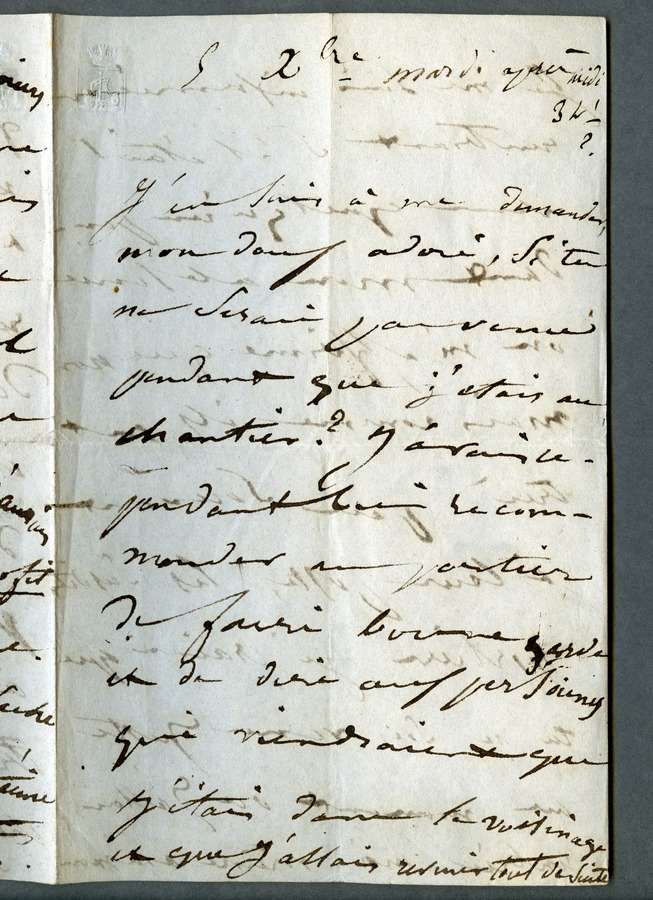 5 Xbre mardi après midi
3 h
?
J'en suis à me demander,
mon doux adoré, si tu
ne serais pas venu
pendant que j'étais au
chantier? J'avais ce-
pendant bien recom-
mander au portier
de faire bonne garde
et de dire aux personnes
qui viendraient que
j'étais dans le voisinage
et que j'allais revenir tout de suite